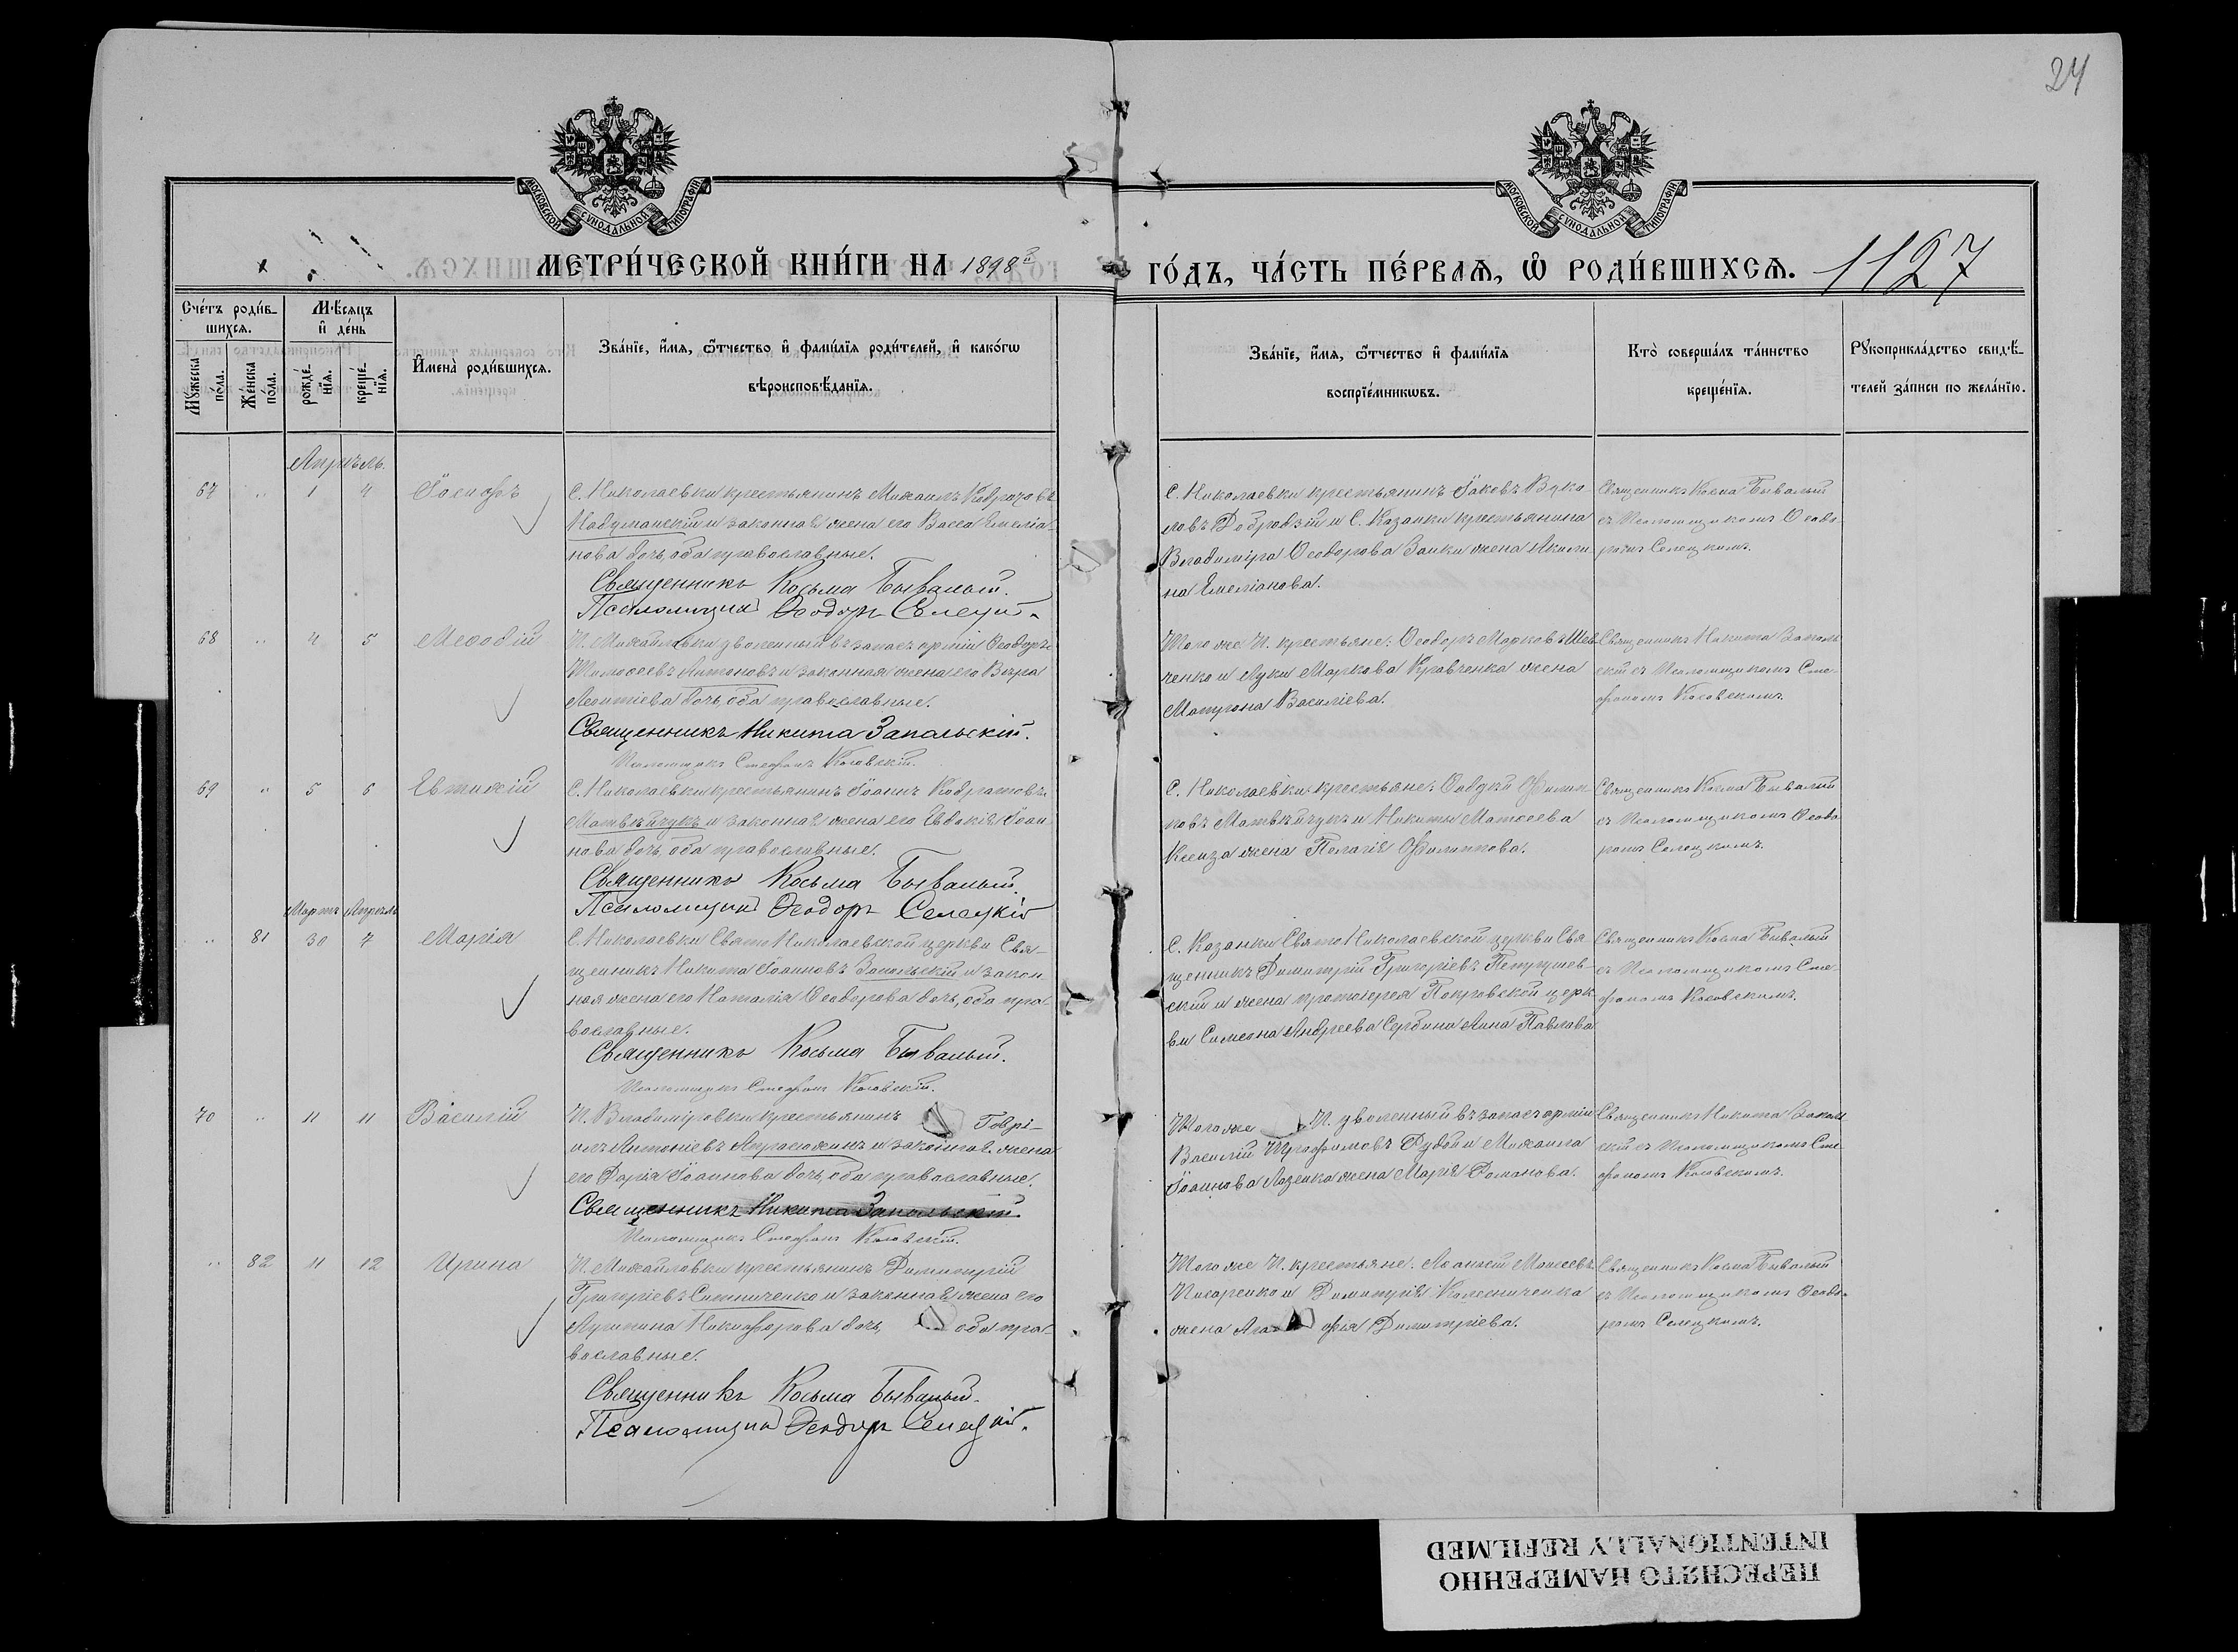 24
МОСКОВСКОЙ СѴНОДАЛЬНОЙ ТИПОГРАФІИ
МОСКОВСКОЙ СѴНОДАЛЬНОЙ ТИПОГРАФІИ
МЕТРИ́ЧЕСКОЙ КНИ́ГИ НА 1898й
ГО́ДЪ, ЧА́СТЬ ПЕ́РВАЯ, Ѽ РОДИ́ВШИХСЯ. 1127
Сче́тъ роди́в-
шихся.
Мѣсяцъ
и҆ де́нь
Мꙋ́жеска по́ла.
Же́нска по́ла.
рожде́-
нїя.
креще́-
нїя.
И҆мена̀ роди́вшихся.
Зва́нїе, и҆́мя, ѿтчество и҆ фами́лїя роди́телей, и҆ како́гѡ
вѣроисповѣданїя.
Зва́нїе, и҆́мя, ѿтчество и҆ фами́лїя
воспрїе́мникѡвъ.
Кто̀ соверша́лъ та́инство
креще́нїя.
Рꙋкоприкла́дство свидѣ-
телей за́писи по жела́нїю.
Апрѣль.
67 " 1 4 Іосифъ
С. Николаевки крестьянинъ Михаилъ
и законная жена его Васса Емеліа-
нова дочь, оба православные.
Священникъ Косьма Бывалый.
Псаломщикъ Ѳеодоръ Селецкій.
С. Николаевки крестьянинъ Іаковъ Вуко-
ловъ и С. Казанки крестьянина
Владиміра Ѳеодорова Заики жена Акили-
на Емеліанова.
Священникъ Косма Бывалый
съ Псаломщикомъ Ѳеодо-
ромъ Селецкимъ.
68 " 4 5 Меѳодій
П. Михайловки уволенный въ запасъ арміи Ѳеодоръ
Тимоѳеевъ Антоновъ и законная жена его Вѣра
Леонтіева дочь, оба православные.
Священникъ Никита Запольскій.
Псаломщикъ Стефанъ Косовскій.
Того же П. крестьяне: Ѳеодоръ Марковъ Шев-
ченко и Луки Маркова Кравченка жена
Матрона Василіева.
Священникъ Никита Заполь-
скій съ Псаломщикомъ Сте-
фаномъ Косовскимъ.
69 " 5 6 Евтихій
С. Николаевки крестьянинъ Іоаннъ Кодратовъ
Матвѣйчукъ и законная жена его Евдокія Іоан-
нова дочь, оба православные.
Священникъ Косьма Бывалый.
Псаломщикъ Ѳеодоръ Селецкій
С. Николаевки крестьяне: Филип-
повъ Матвѣйчукъ и Никиты Матѳеева
жена Пелагія Филиппова.
Священникъ Косма Бывалый
съ Псаломщикомъ Ѳеодо-
ромъ Селецкимъ.
Мартъ Апрѣль
" 81 30 7 Марія
С. Николаевки Свято Николаевской церкви Свя-
щенникъ Никита Іоанновъ Запольскій и закон-
ная жена его Наталія Ѳеодорова дочь, оба пра-
вославные.
Священникъ Косьма Бывалый.
Псаломщикъ Стефанъ Косовскій.
С. Казанки Свято Николаевской церкви Свя-
щенникъ Димитрій Григоріевъ Петрушев-
скій и жена протоіерея Покровской церк-
ви Симеона Андреева Сербина Анна Павлова
Священникъ Косма Бывалый
съ Псаломщикомъ Сте-
фаномъ Косовскимъ.
70 " 11 11 Василій
П. Владиміровки крестьянинъ Гаврі-
илъ Антоніевъ и законная жена
его Дарія Іоаннова дочь, оба православные.
Священникъ Никита Запольскій.
Псаломщикъ Стефанъ Косовскій.
Того же П. уволенный въ запасъ арміи
Василій Трофимовъ и Михаила
Іоаннова Лазенка жена Марія Романова.
Священникъ Никита Заполь-
скій съ Псаломщикомъ Сте-
фаномъ Косовскимъ.
" 82 11 12 Ирина
П. Михайловки крестьянинъ Димитрій
Григоріевъ Ситниченко и законная жена его
Агрипина Никифорова дочь, оба пра-
вославные.
Священникъ Косьма Бывалый.
Псаломщикъ Ѳеодоръ Селецкій.
Того же П. крестьяне: Аѳанасій Моисеевъ
Писаренко и Димитрія Колесниченка
жена Ага фія Димитріева.
Священникъ Косма Бывалый
съ Псаломщикомъ Ѳеодо-
ромъ Селецкимъ.
ПЕРЕСНЯТО НАМЕРЕННО
INTENTIONALLY REFILMED